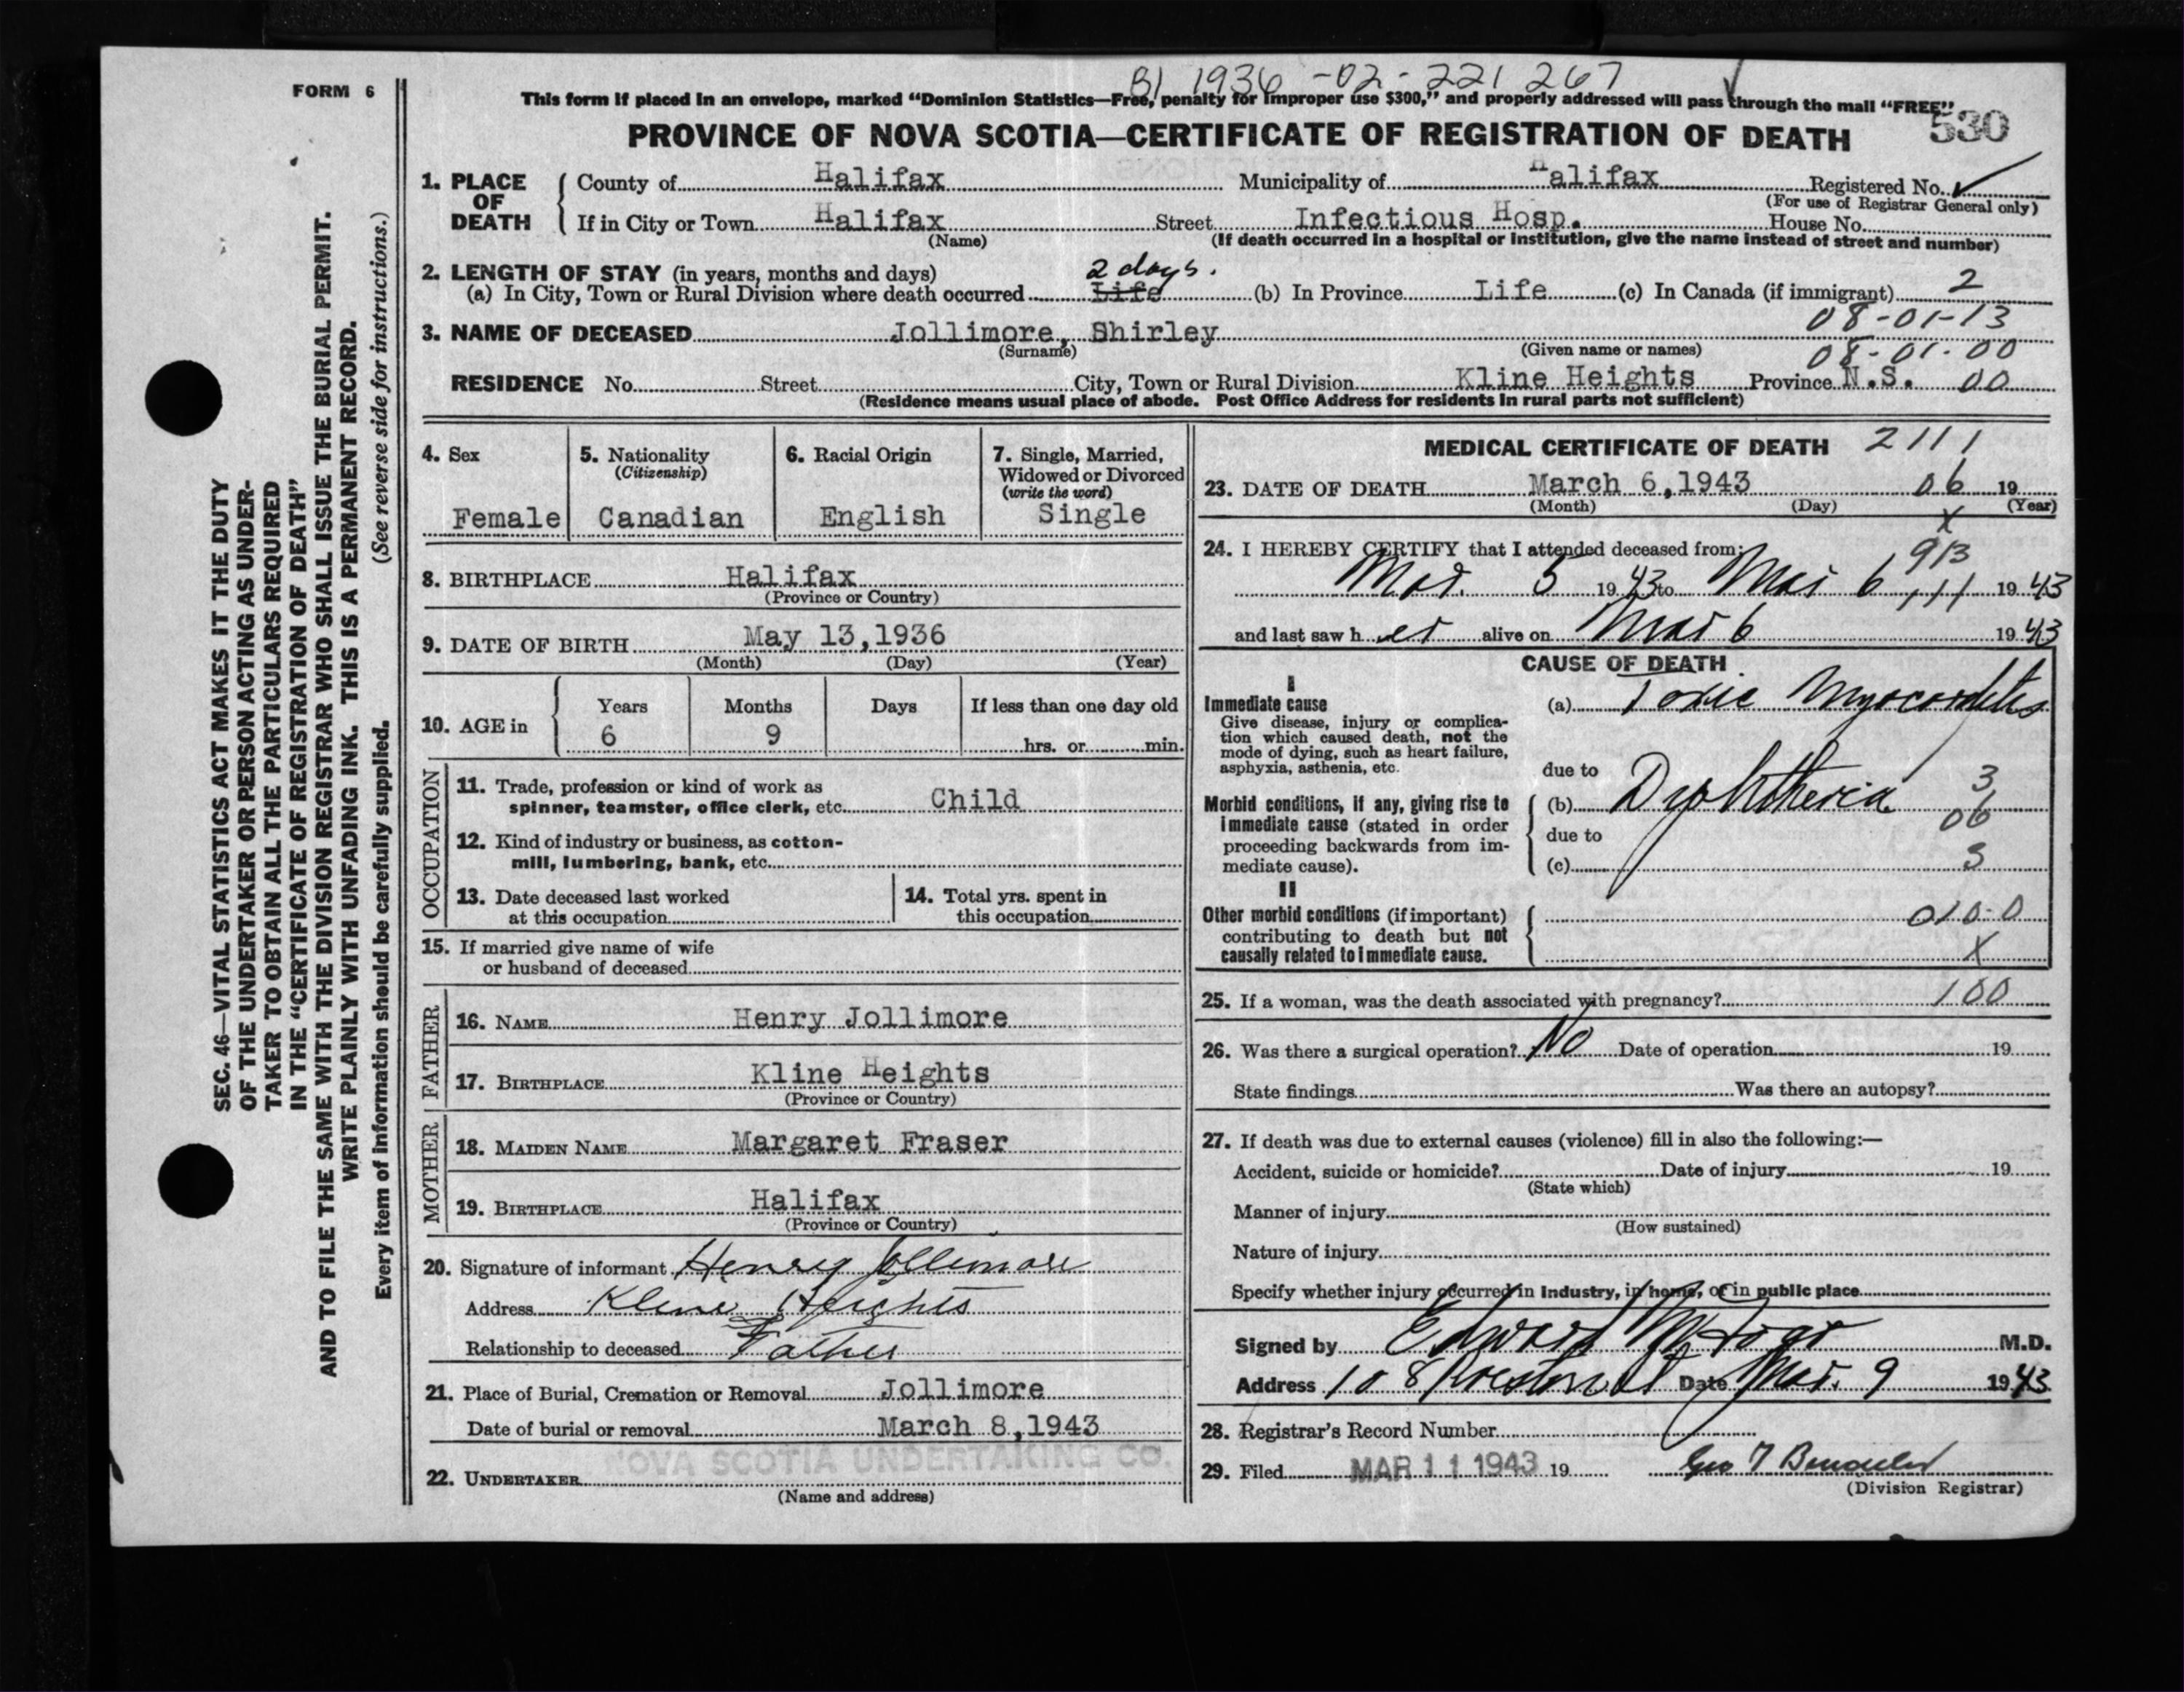 B1 1936 -02- 221 267
FORM 6
This form if placed in an envelope, marked “Dominion Statistics—Free, penalty for improper use $300,” and properly addressed will pass through the mail “FREE”
530
PROVINCE OF NOVA SCOTIA—CERTIFICATE OF REGISTRATION OF DEATH
1. PLACE OF DEATH
County of Halifax Municipality of Halifax Registered No.
(For use of Registrar General only)
If in City or Town Halifax Street Infectious Hosp. House No.
(Name) (If death occurred in a hospital or institution, give the name instead of street and number)
2. LENGTH OF STAY (in years, months and days) 2 days.
(a) In City, Town or Rural Division where death occurred Life (b) In Province Life (c) In Canada (if immigrant) 2
08-01-13
3. NAME OF DECEASED Jollimore, Shirley
(Surname) (Given name or names) 08-01-00
RESIDENCE No. Street City, Town or Rural Division Kline Heights Province N.S. 00
(Residence means usual place of abode. Post Office Address for residents in rural parts not sufficient)
4. Sex
Female
5. Nationality
(Citizenship)
Canadian
6. Racial Origin
English
7. Single, Married,
Widowed or Divorced
(write the word)
Single
8. BIRTHPLACE Halifax
(Province or Country)
9. DATE OF BIRTH May 13, 1936
(Month) (Day) (Year)
10. AGE in
Years Months Days If less than one day old
6 9 hrs. or min.
OCCUPATION
11. Trade, profession or kind of work as
spinner, teamster, office clerk, etc. Child
12. Kind of industry or business, as cotton-
mill, lumbering, bank, etc.
13. Date deceased last worked
at this occupation
14. Total yrs. spent in
this occupation
15. If married give name of wife
or husband of deceased
FATHER
16. NAME Henry Jollimore
17. BIRTHPLACE Kline Heights
(Province or Country)
MOTHER
18. MAIDEN NAME Margaret Fraser
19. BIRTHPLACE Halifax
(Province or Country)
20. Signature of informant Henry Jollimore
Address Kline Heights
Relationship to deceased Father
21. Place of Burial, Cremation or Removal Jollimore
Date of burial or removal March 8, 1943
NOVA SCOTIA UNDERTAKING CO.
22. UNDERTAKER
(Name and address)
MEDICAL CERTIFICATE OF DEATH 2111
23. DATE OF DEATH March 6, 1943 06 19
(Month) (Day) (Year)
X
24. I HEREBY CERTIFY that I attended deceased from: 913
Mar. 5 1943 to Mar 6 111 1943
and last saw her alive on Mar 6 1943
CAUSE OF DEATH
I
Immediate cause
Give disease, injury or complica-
tion which caused death, not the
mode of dying, such as heart failure,
asphyxia, asthenia, etc.
(a) Toxic Myocarditis
due to
Morbid conditions, if any, giving rise to
immediate cause (stated in order
proceeding backwards from im-
mediate cause).
(b) Diphtheria 3
due to 06
(c) 3
II
Other morbid conditions (if important)
contributing to death but not
causally related to immediate cause.
010-0
X
25. If a woman, was the death associated with pregnancy? 100
26. Was there a surgical operation? No Date of operation 19
State findings Was there an autopsy?
27. If death was due to external causes (violence) fill in also the following:—
Accident, suicide or homicide? Date of injury 19
(State which)
Manner of injury
(How sustained)
Nature of injury
Specify whether injury occurred in industry, in home, or in public place
Signed by Edward M. M.D.
Address 108 Date Mar. 9 1943
28. Registrar's Record Number
29. Filed MAR 11 1943 19 Geo
(Division Registrar)
SEC. 46—VITAL STATISTICS ACT MAKES IT THE DUTY
OF THE UNDERTAKER OR PERSON ACTING AS UNDER-
TAKER TO OBTAIN ALL THE PARTICULARS REQUIRED
IN THE “CERTIFICATE OF REGISTRATION OF DEATH”
AND TO FILE THE SAME WITH THE DIVISION REGISTRAR WHO SHALL ISSUE THE BURIAL PERMIT.
WRITE PLAINLY WITH UNFADING INK. THIS IS A PERMANENT RECORD.
Every item of information should be carefully supplied. (See reverse side for instructions.)